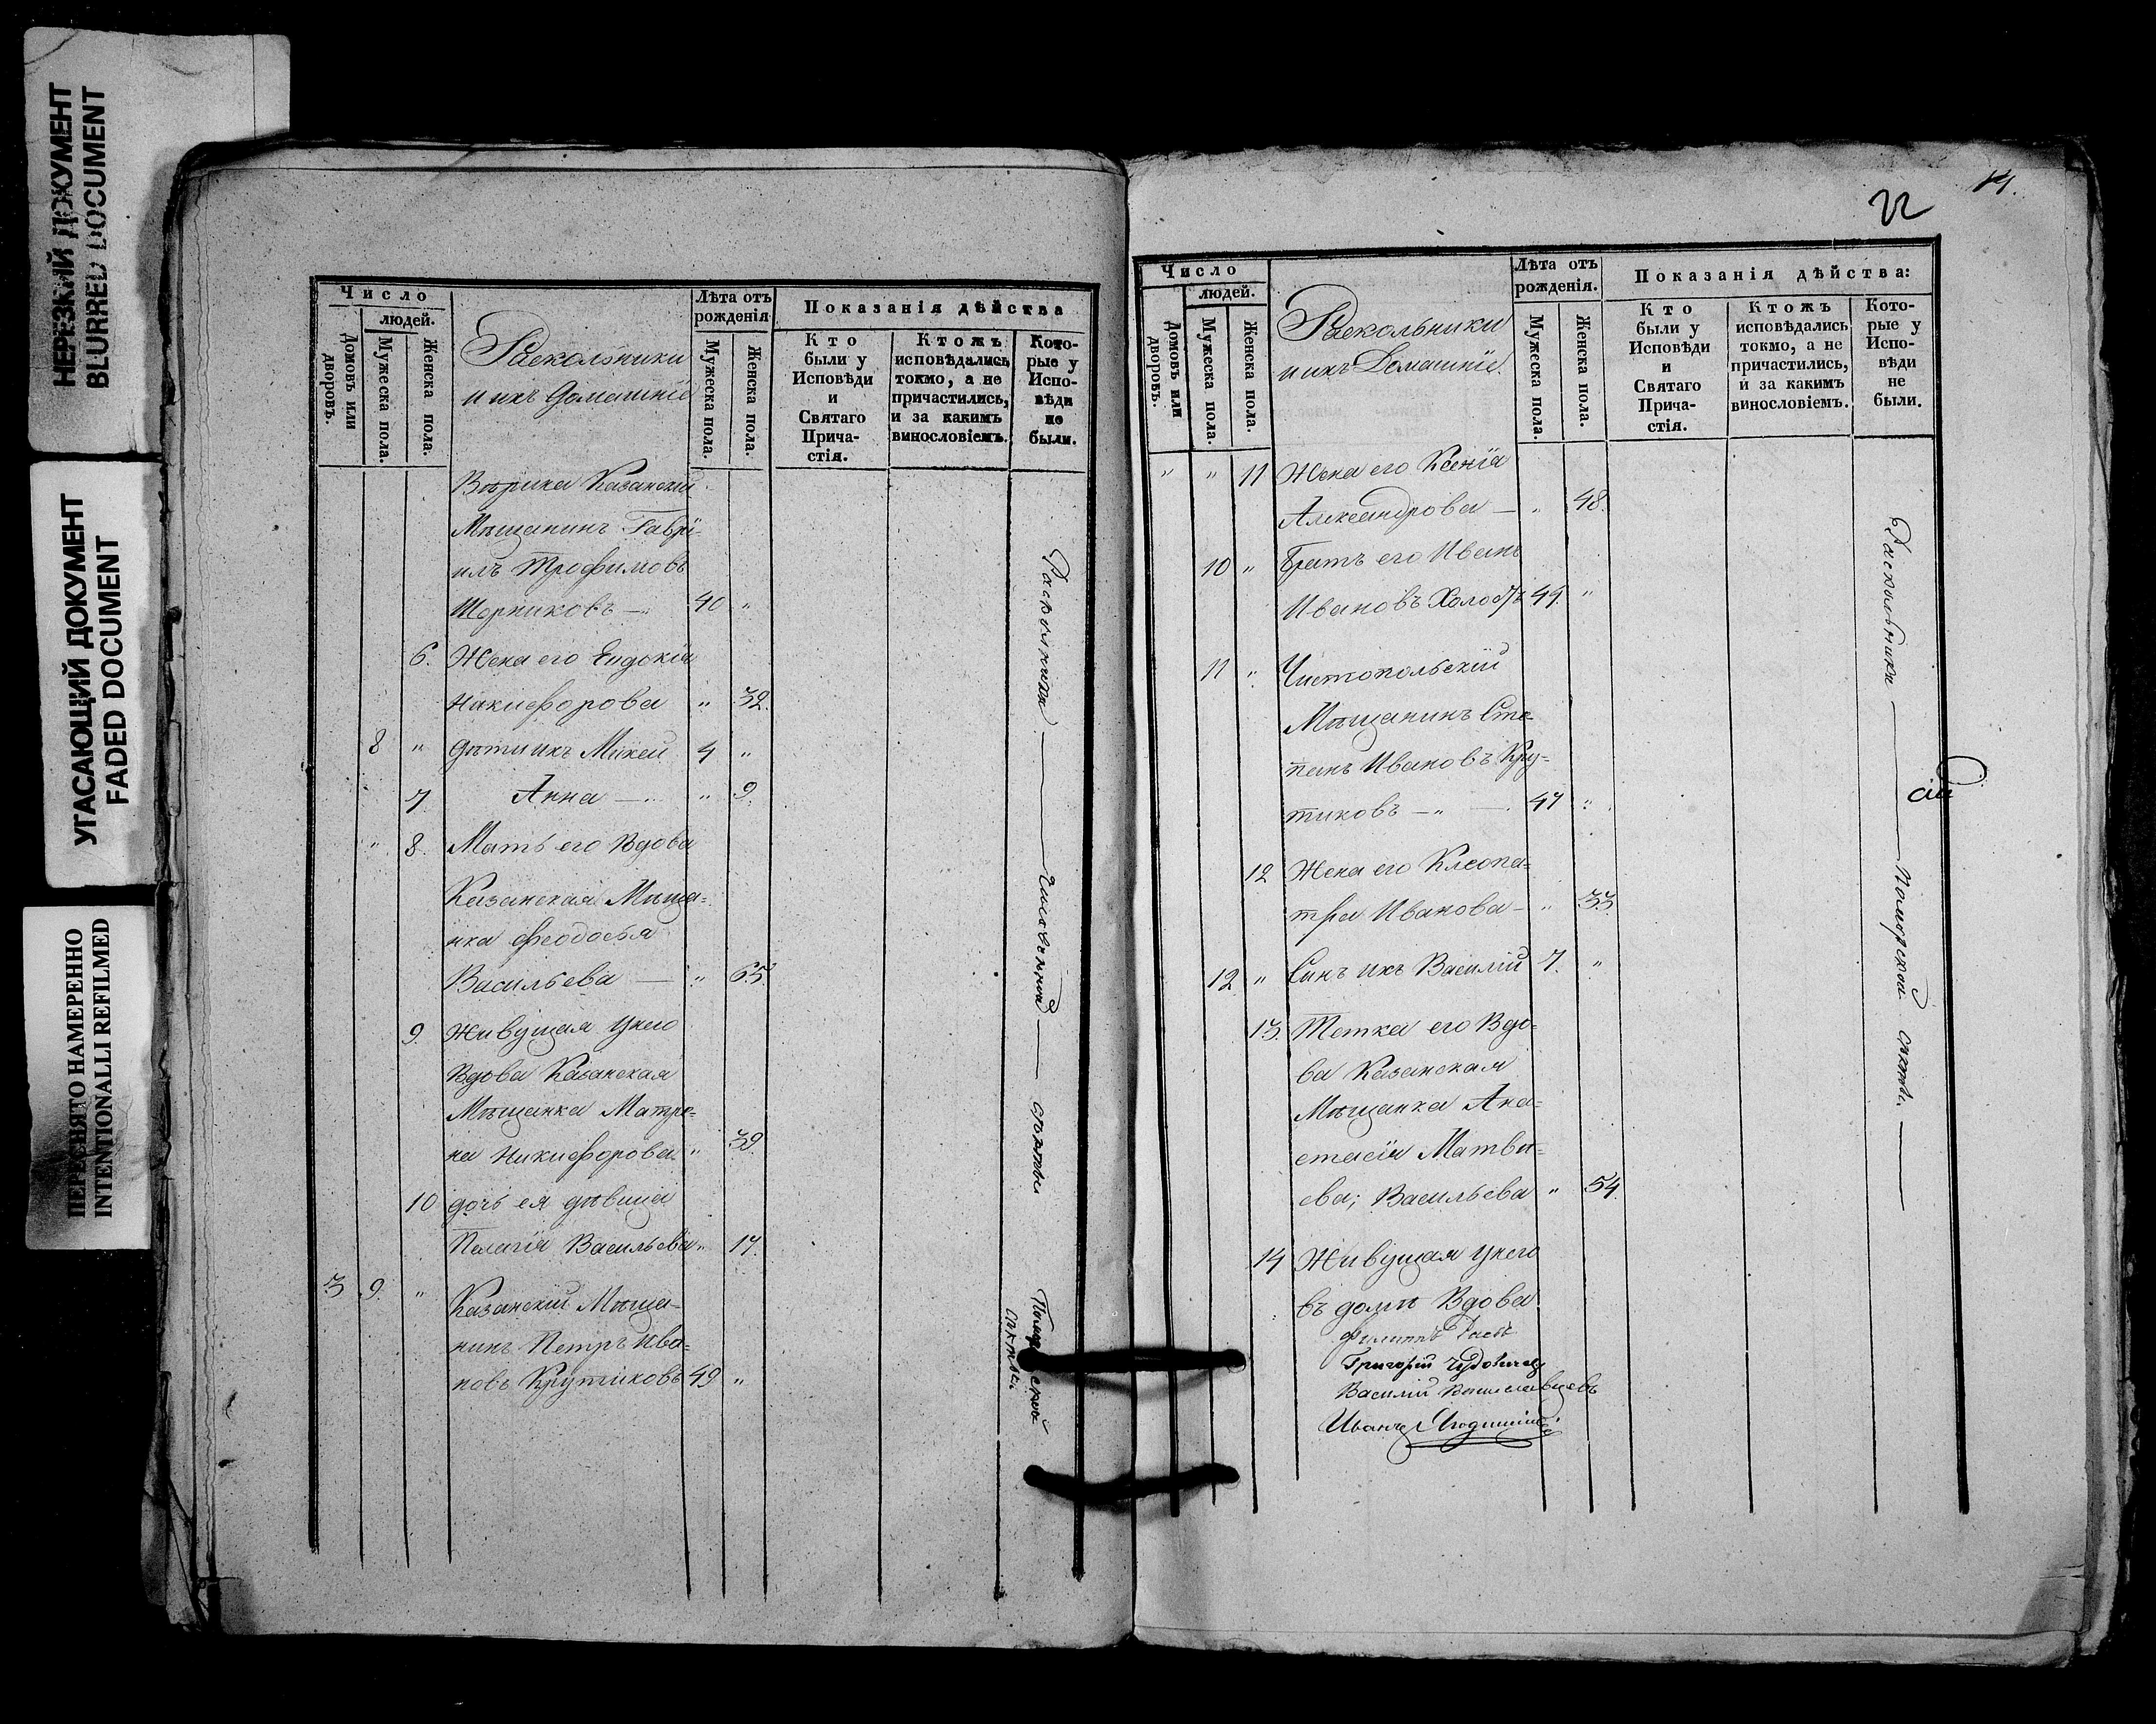 НЕРЕЗКИЙ ДОКУМЕНТ
BLURRED DOCUMENT
УГАСАЮЩИЙ ДОКУМЕНТ
FADED DOCUMENT
ПЕРЕСНЯТО НАМЕРЕННО
INTENTIONALLI REFILMED
Число
людей.
Домовъ или дворовъ.
Мужеска пола.
Женска пола.
Раскольники
и ихъ Домашніе
Лѣта отъ
рожденія
Мужеска пола.
Женска пола.
Показанія дѣйства
Кто
были у
Исповѣди
и
Святаго
Прича-
стія.
Ктожъ
исповѣдались
токмо, а не
причастились,
и за какимъ
винословіемъ.
Кото-
рые у
Испо-
вѣди
не
были.
Казанскій
Мѣщанинъ Гаврі-
илъ Трофимовъ
40 "
6. Жена его Евдокія
Никифорова " 32.
8 " Дѣти ихъ Михей 4 "
7. Анна — " 9.
" 8. Мать его Вдова
Казанская Мѣща-
нка Феодосья
Васильева — " 65.
9. Живущая у него
Вдова Казанская
Мѣщанка Матре-
на Никифорова " 39.
10 дочь ея дѣвица
Пелагія Васильева " 17.
3 9. " Казанскій Мѣща-
нинъ Петръ Ива-
новъ Крутиковъ 49 "
секты
Поморской
секты.
22
14.
Число
людей.
Домовъ или дворовъ.
Мужеска пола.
Женска пола.
Раскольники
и ихъ Домашніе.
Лѣта отъ
рожденія.
Мужеска пола.
Женска пола.
Показанія дѣйства:
Кто
были у
Исповѣди
и
Святаго
Прича-
стія.
Ктожъ
исповѣдались
токмо, а не
причастились,
и за какимъ
винословіемъ.
Кото-
рые у
Испо-
вѣди
не
были.
" " 11 Жена его Ксенія
Александрова — " 48.
10 " Братъ его Иванъ
Ивановъ
11 " Чистопольскій
Мѣщанинъ Сте-
панъ Ивановъ Кру-
тиковъ — " — 47 "
12 Жена его Клеопа-
тра Иванова — " 33.
12 " Сынъ ихъ Василій 7. "
13. Тетка его Вдо-
ва Казанская
Мѣщанка Ана-
стасія Матвѣ-
ева; Васильева " 54.
14 Живущая у него
въ домѣ Вдова
Григорій
Василій
Иванъ
Раскольники — Поморской секты. —